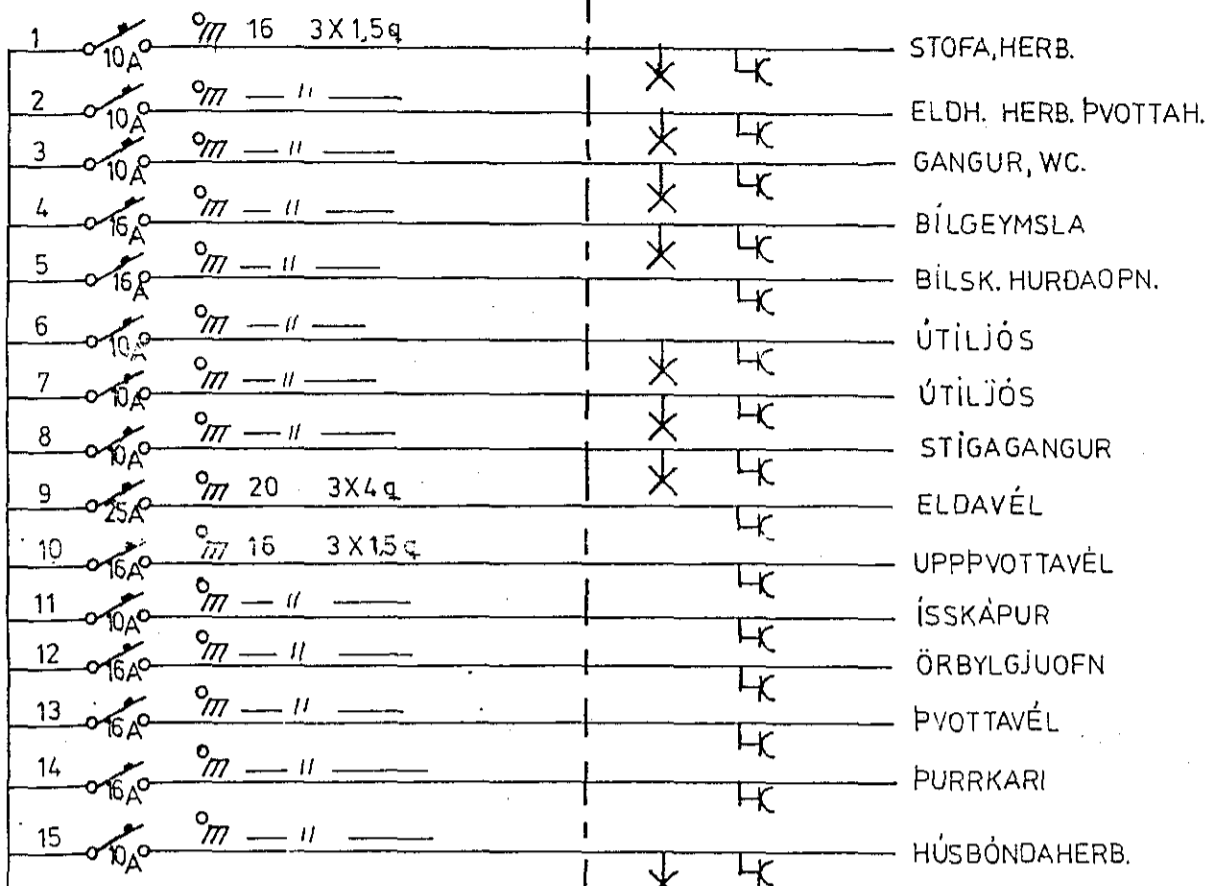 1 10A 16 3X1,5q STOFA,HERB.
2 10A — 11 — ELDH. HERB. ÞVOTTAH.
3 10A — 11 — GANGUR, WC.
4 16A — 11 — BÍLGEYMSLA
5 16A — 11 — BÍLSK. HURÐAOPN.
6 10A — 11 — ÚTILJÓS
7 10A — 11 — ÚTILJÓS
8 10A — 11 — STIGAGANGUR
9 25A 20 3X4q ELDAVÉL
10 16A 16 3X1,5q UPPÞVOTTAVÉL
11 10A — 11 — ÍSSKÁPUR
12 16A — 11 — ÖRBYLGJUOFN
13 16A — 11 — ÞVOTTAVÉL
14 16A — 11 — ÞURRKARI
15 10A — 11 — HÚSBÓNDAHERB.